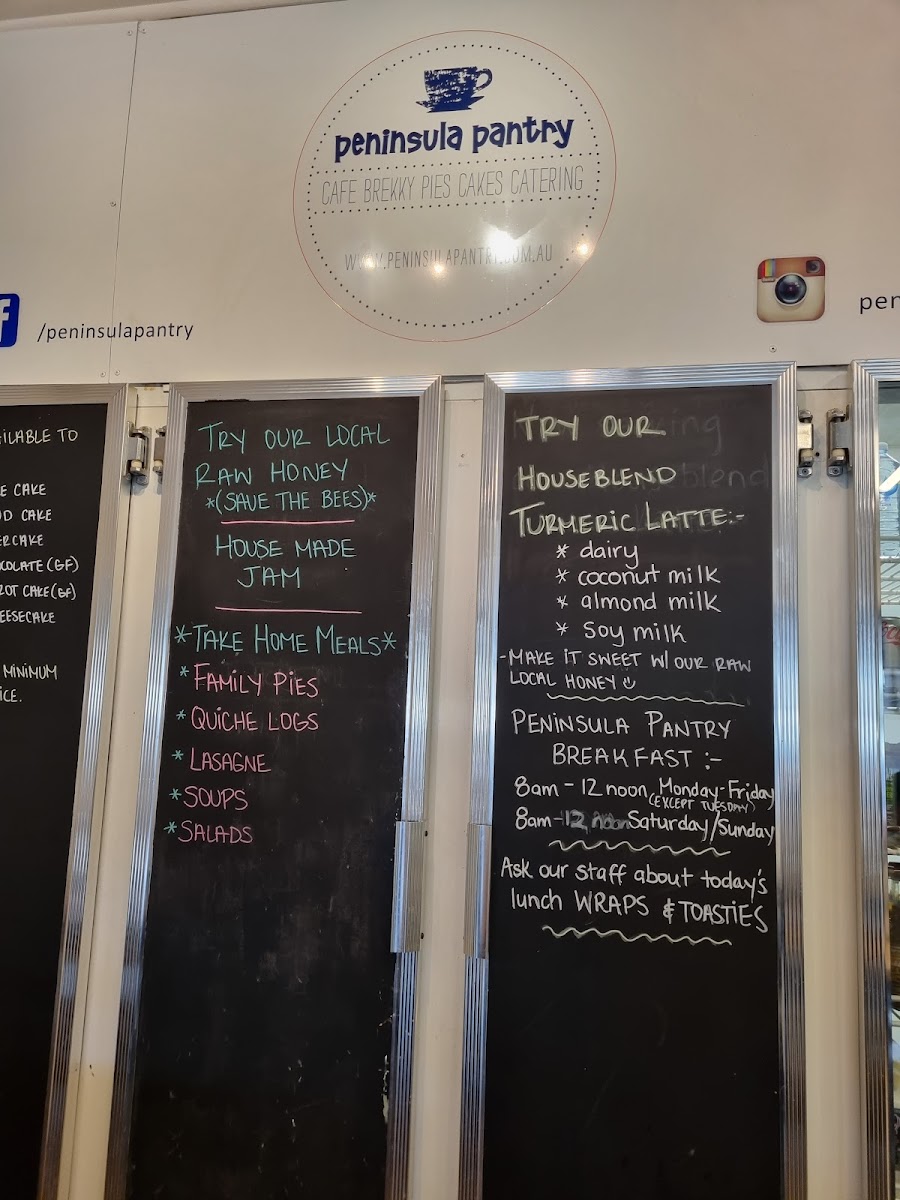 peninsula pantry
CAFE BREKKY PIES CAKES CATERING
WWW.PENINSULAPANTRY.COM.AU
f
/peninsulapantry
pen
AILABLE TO
E CAKE
D CAKE
ERCAKE
OCOLATE (GF)
ROT CAKE (GF)
EESECAKE
MINIMUM
ICE.
TRY OUR LOCAL
RAW HONEY
*(SAVE THE BEES)*
HOUSE MADE
JAM
*TAKE HOME MEALS*
* FAMILY PIES
* QUICHE LOGS
* LASAGNE
* SOUPS
* SALADS
TRY OUR
HOUSEBLEND
TURMERIC LATTE:-
* dairy
* coconut milk
* almond milk
* Soy milk
- MAKE IT SWEET W/ OUR RAW
LOCAL HONEY
PENINSULA PANTRY
BREAKFAST :-
8am - 12 noon Monday-Friday
(EXCEPT TUESDAY)
8am - 12 noon Saturday/Sunday
Ask our staff about today's
lunch WRAPS & TOASTIES